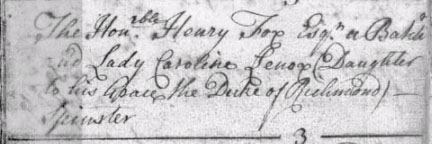 The Hon.rble Henry Fox Esq.r a Batchr
and Lady Caroline Lenox (Daughter
to his Grace the Duke of Richmond) —
Spinster
3